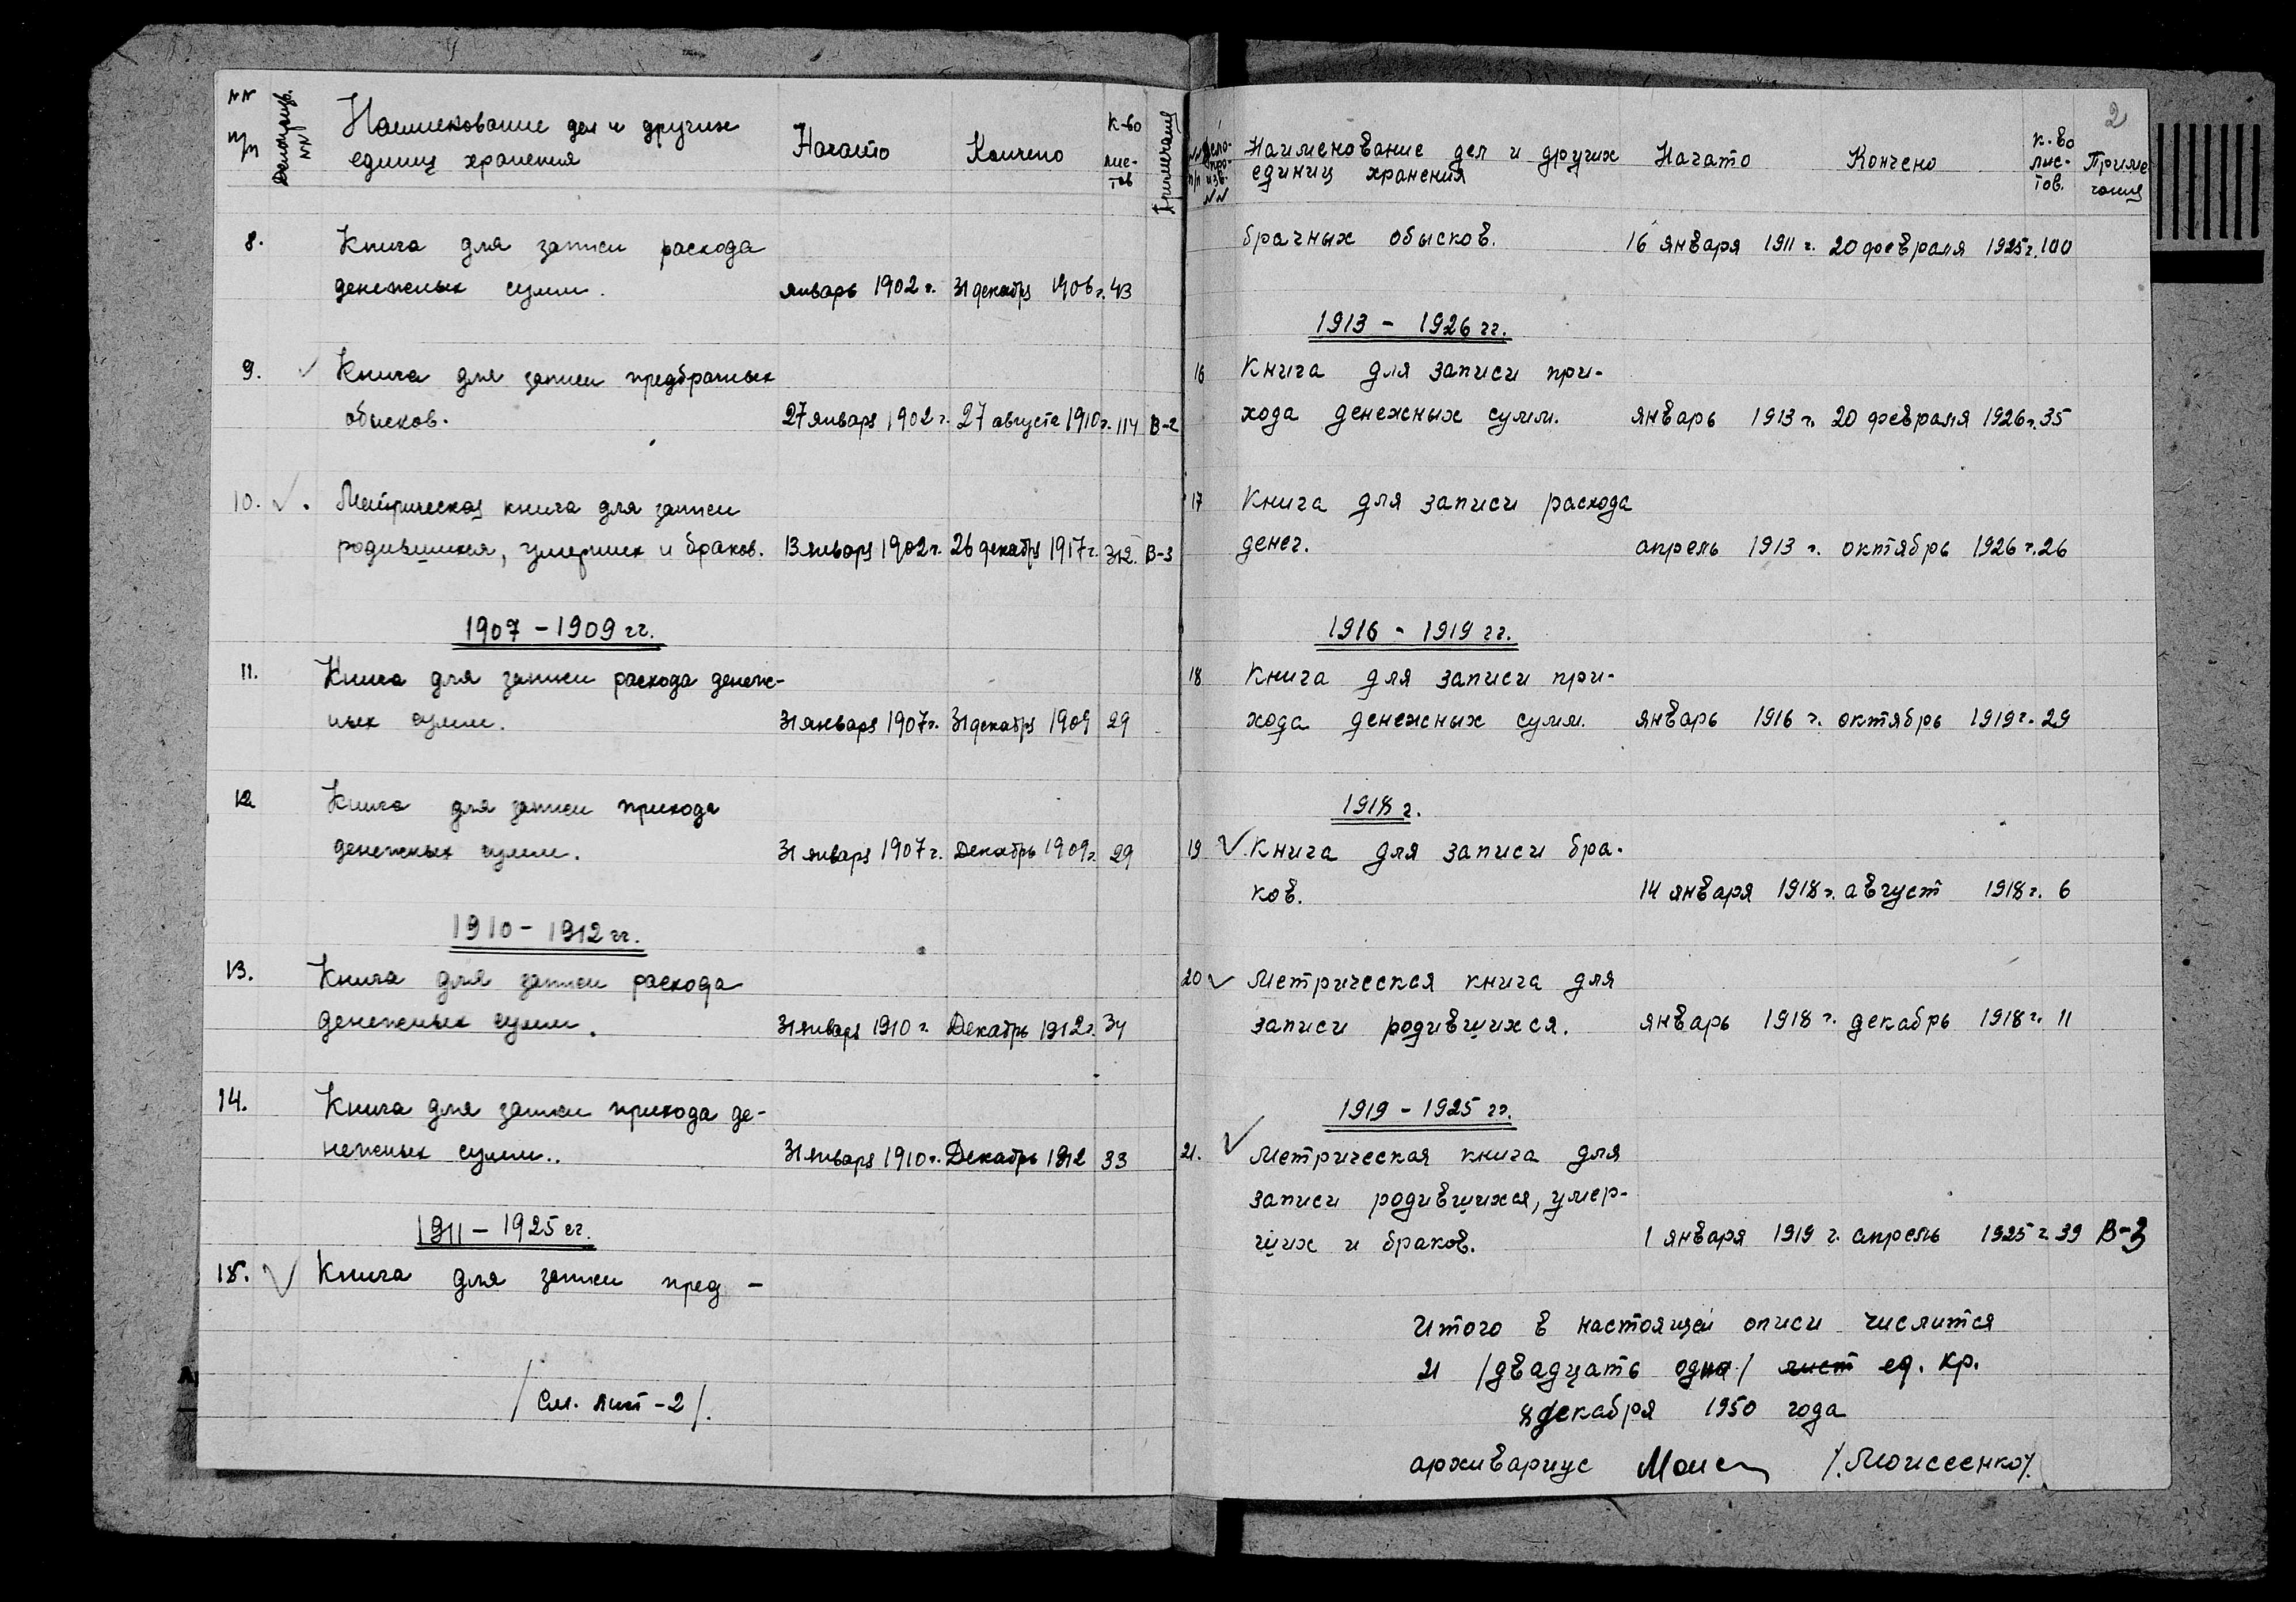 NN п/п
Делопроизв. NN
Наименование дел и других
единиц хранения
Начато
Кончено
К-во лис-тов
Примечания
8. Книга для записи расхода
денежных сумм. январь 1902 г. 31 декабря 1906 г. 43
9. ✓ Книга для записи предбрачных
обысков. 27 января 1902 г. 27 августа 1910 г. 114 В-2
10. ✓. Метрическая книга для записи
родившихся, умерших и браков. 13 января 1902 г. 26 декабря 1917 г. 312. В-3
1907 - 1909 гг.
11. Книга для записи расхода денеж-
ных сумм. 31 января 1907 г. 31 декабря 1909 29
12 Книга для записи прихода
денежных сумм. 31 января 1907 г. Декабрь 1909 г. 29
1910 - 1912 гг.
13. Книга для записи расхода
денежных сумм. 31 января 1910 г. Декабрь 1912 г. 34
14. Книга для записи прихода де-
нежных сумм.. 31 января 1910 г. Декабрь 1912 33
1911 - 1925 гг.
15. ✓ Книга для записи пред -
/ См. лист - 2 /.
2
NN п/п
Дело-про-изв. NN
Наименование дел и других
единиц хранения
Начато
Кончено
к-во лис-тов.
Приме
чания
брачных обысков. 16 января 1911 г. 20 февраля 1925 г. 100
1913 - 1926 гг.
16 Книга для записи при-
хода денежных сумм. январь 1913 г. 20 февраля 1926 г. 35
17 Книга для записи расхода
денег. апрель 1913 г. октябрь 1926 г. 26
1916 - 1919 гг.
18 Книга для записи при-
хода денежных сумм. январь 1916 г. октябрь 1919 г. 29
1918 г.
19 ✓. Книга для записи бра-
ков. 14 января 1918 г. август 1918 г. 6
20 ✓ Метрическая книга для
записи родившихся. январь 1918 г. декабрь 1918 г. 11
1919 - 1925 гг.
21. ✓ Метрическая книга для
записи родившихся, умер-
ших и браков. 1 января 1919 г. апрель 1925 г. 39 В-3
Итого в настоящей описи числится
21 /двадцать одна/ лист ед. хр.
8 декабря 1950 года
архивариус /.Моисеенко/.